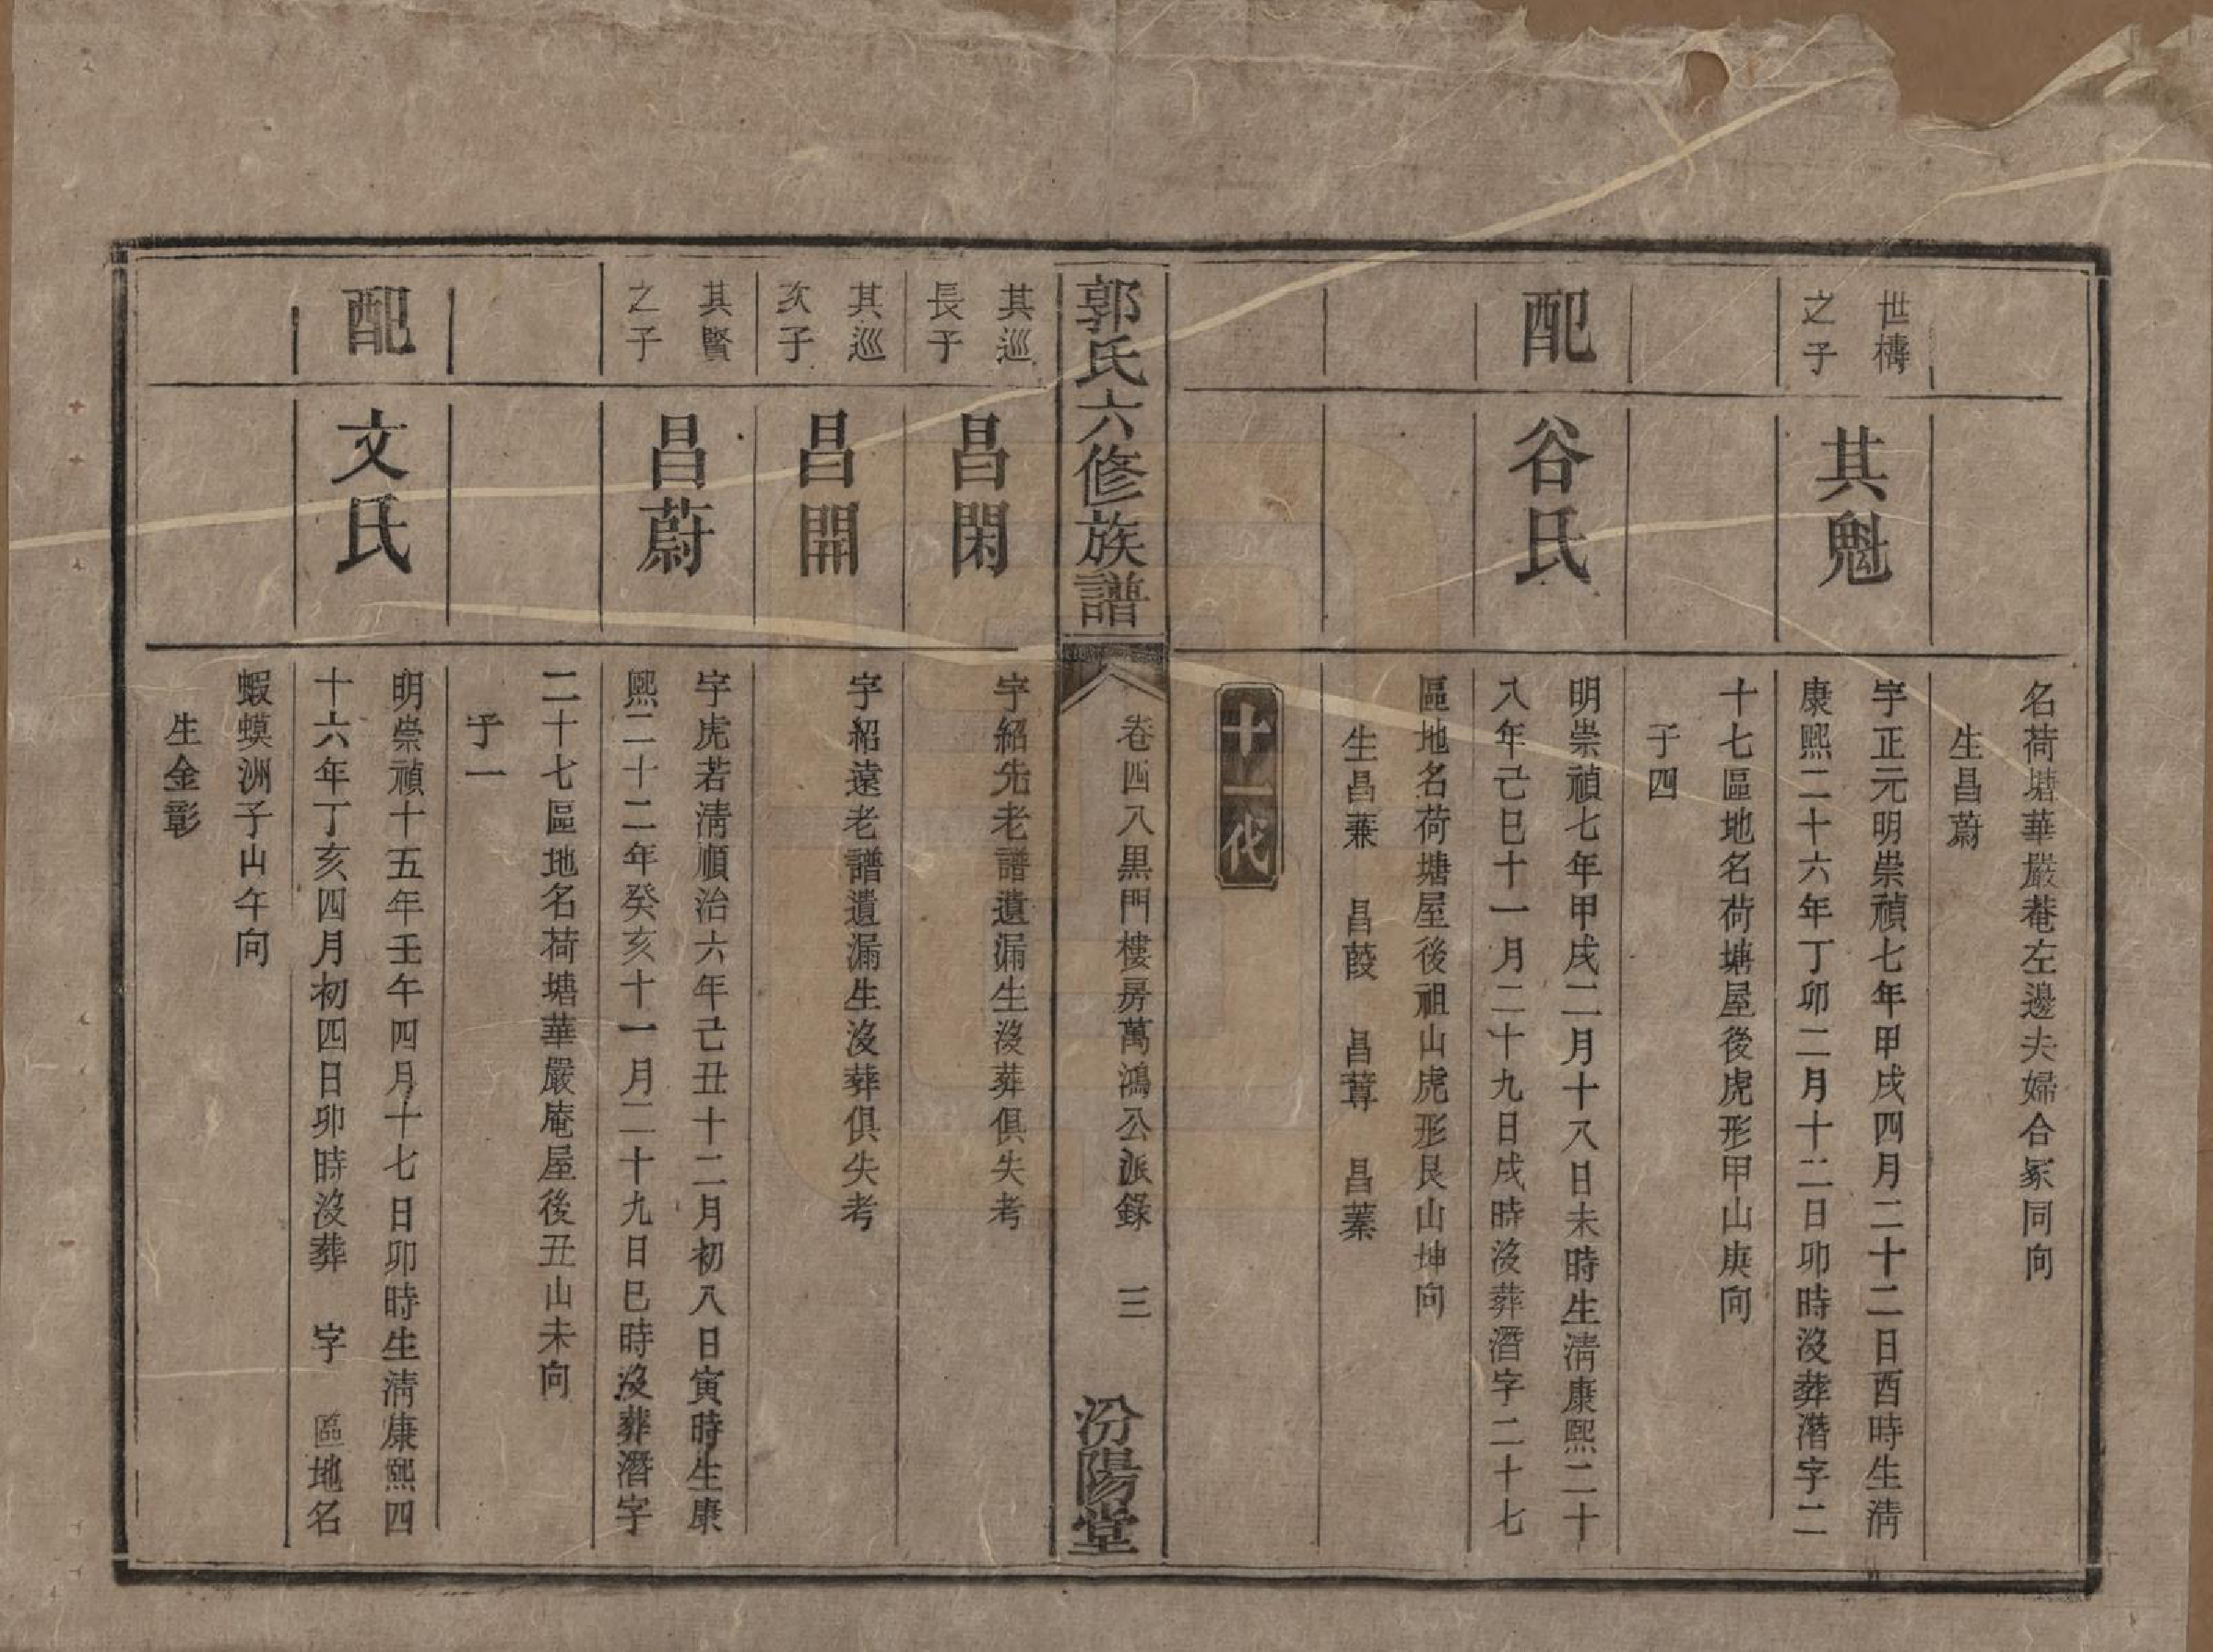 名荷塘華嚴菴左邊夫婦合冢同向
生昌蔚
世檮
之子
其魁
字正元明崇禎七年甲戌四月二十二日酉時生淸
康熙二十六年丁卯二月十二日卯時沒葬潛字二
十七區地名荷塘屋後虎形甲山庚向
子四
配
谷氏
明崇禎七年甲戌二月十八日未時生淸康熙二十
八年己巳十一月二十九日戌時沒葬潛字二十七
區地名荷塘屋後祖山虎形艮山坤向
生昌蒹 昌葭 昌葊 昌蓁
十一代
郭氏六修族譜
卷四八黒門樓房萬鴻公派錄 三
汾陽堂
其巡
長子
昌閑
字紹先老譜遺漏生沒葬俱失考
其巡
次子
昌開
字紹遠老譜遺漏生沒葬俱失考
其賢
之子
昌蔚
字虎若淸順治六年己丑十二月初八日寅時生康
熙二十二年癸亥十一月二十九日巳時沒葬潛字
二十七區地名荷塘華嚴庵屋後丑山未向
子一
配
文氏
明崇禎十五年壬午四月十七日卯時生淸康熙四
十六年丁亥四月初四日卯時沒葬 字 區地名
蝦蟆洲子山午向
生金彰